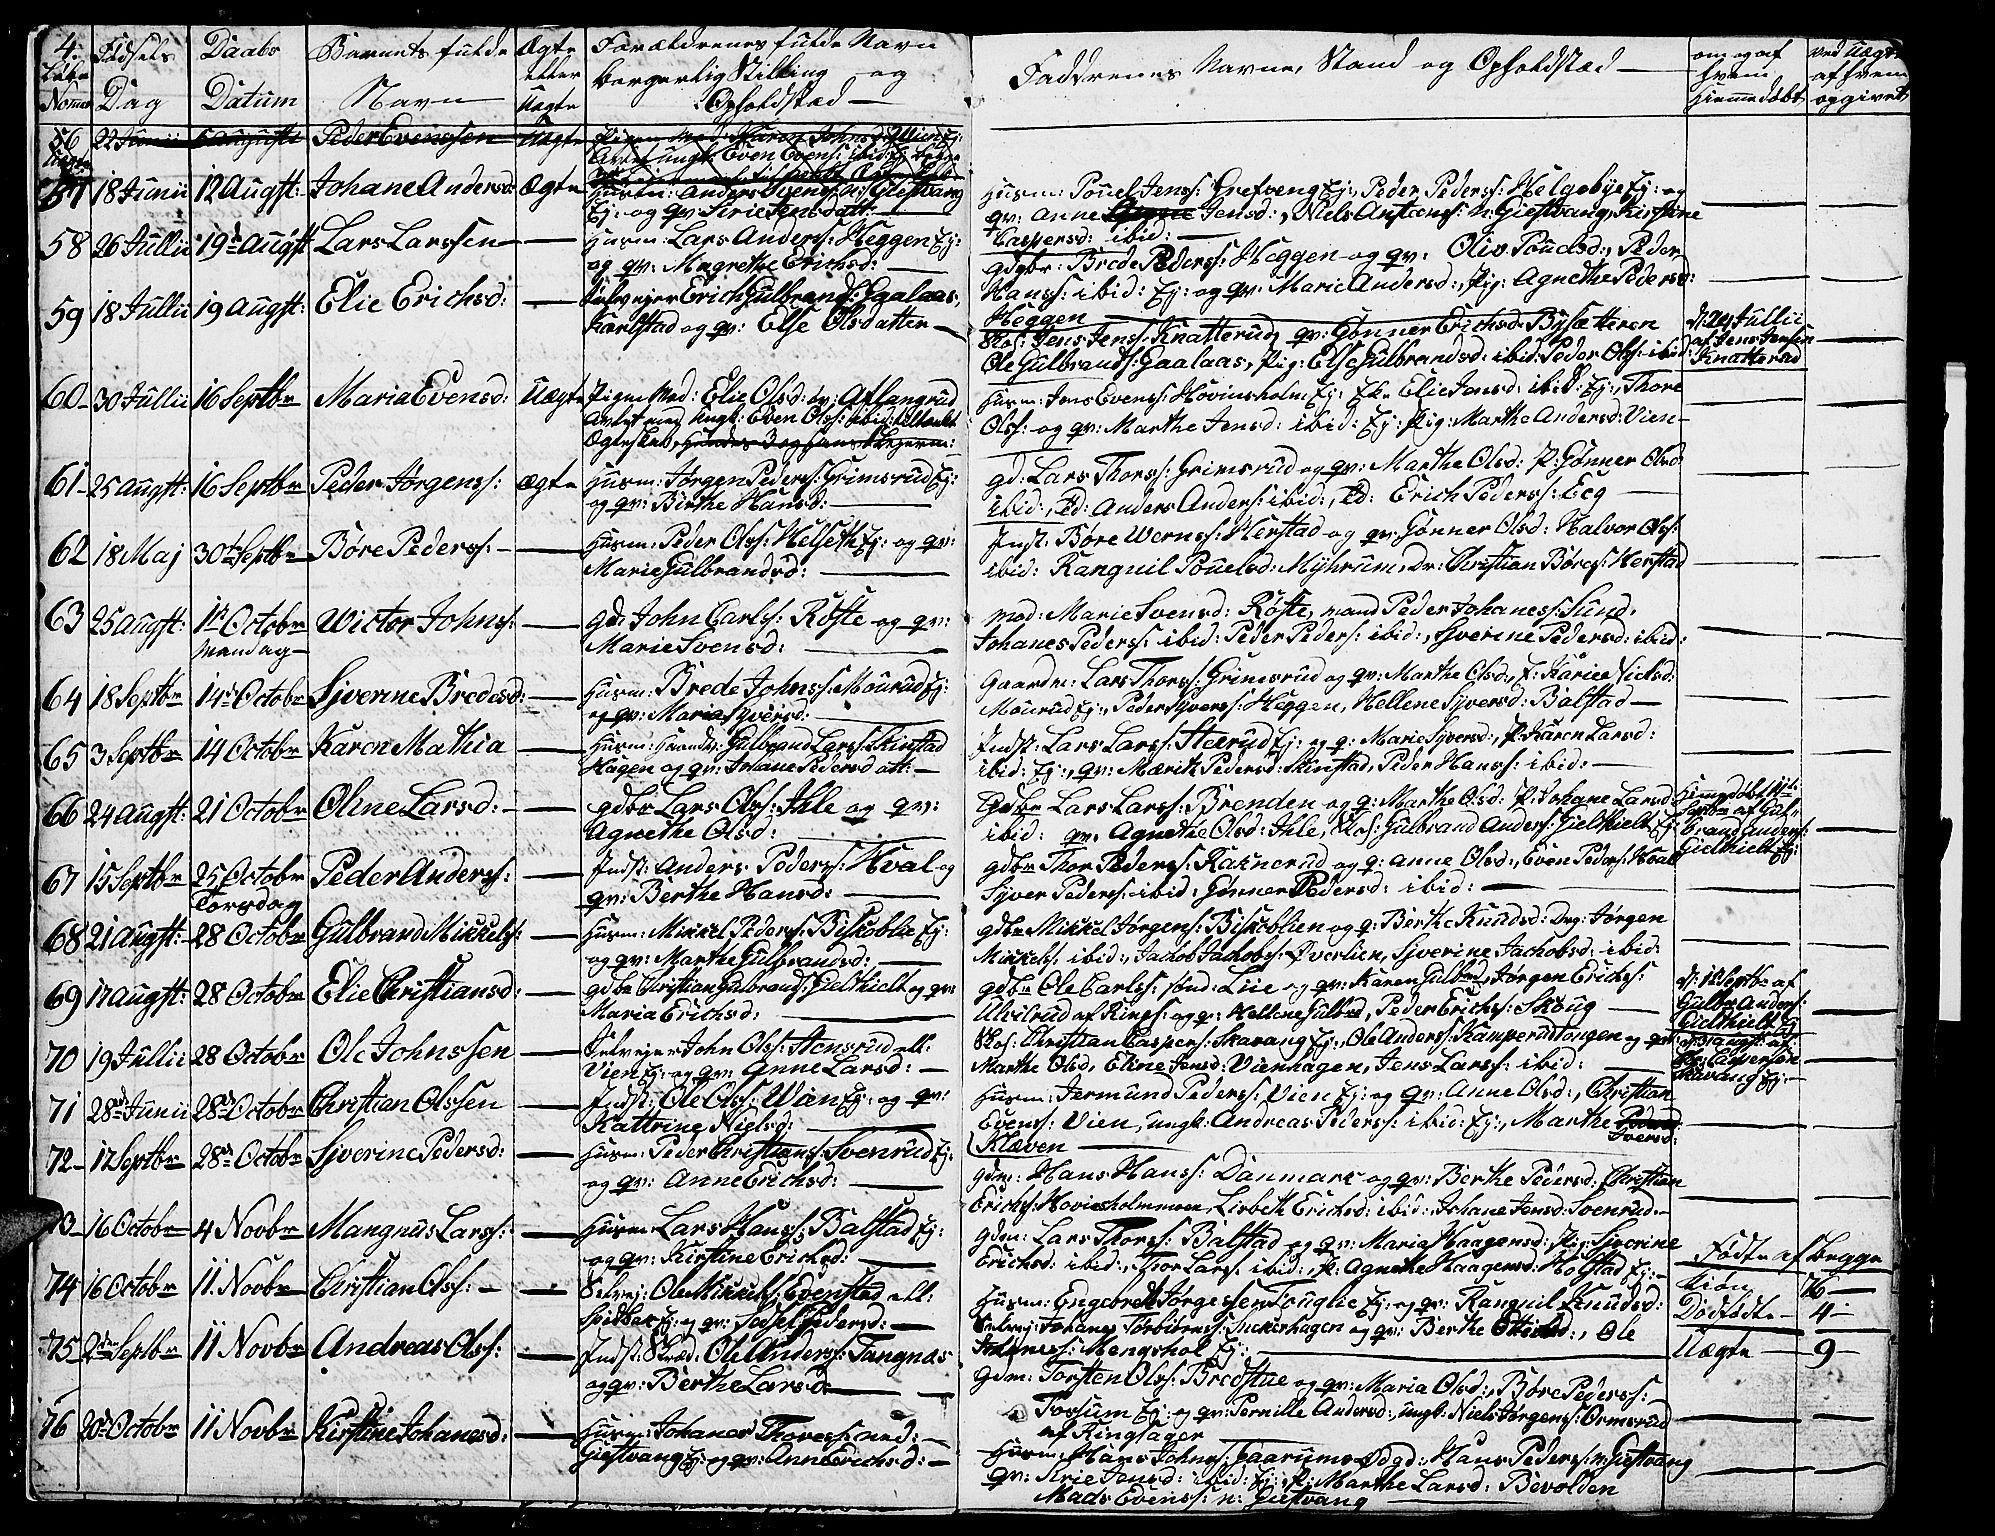 4.
Løbe Nomer
Fødsels Dag
Daabs Datum
Barnets fulde Navn
Ægte eller Uægte
Forældrenes fulde Navn borgerlig Stilling og Opholdstæd
Faddrenes Navne, Stand og Opholdstæd
om og af hvem hjemmedøbt
ved Uægte af hvem opgivet
56 22 Junii 5 Augusti Peder Evenssen Uægte
57 18 Junii 12 Augst: Johane Andersd: Ægte
Husm: Anders Svens: n: Giestvang
Ej: og qv: Sirie Jensdatt:
Husm: Pouel Jenss: Grefveng Ej:, Peder Peders: Helgebye Ej: og
qv: Anne Jensd:, Niels Antons: n: Giestvang, Kirstine
Caspersd: ibid:
58 26 Jullii 19de Augst Lars Larssen
Husm: Lars Anders: Heggen Ej:
og qv: Magrethe Erichsd:
gdbr: Brede Peders: Heggen og qv: Oliv Pouelsd:, Peder
Hanss: ibid: Ej: og qv: Marie Andersd:, Pig: Agnethe Pedersd:
Heggen
59 18 Jullii 19 Augst: Elie Erichsd:
Selvejer Erich Gulbrands: Gaalaas,
Karlstad og qv: Else Olsdatter
Skol: Jens Jens: Knatterud, qv: Gønner Erichsd: Bysætteren
Ole Gulbrands: Gaalaas, Pig: Else Gulbrandsd: ibid: Peder Ols: ibid:
d: 24 Jullii
af Jens Jensen
Knatterud
60 30 Jullii 16 Septbr Maria Evensd: Uægte
Pigen Mad: Elie Olsd: øv: Atlangrud
Avlet med ungk: Even Ols: ibid:
Husm: Jens Evens: Hovinsholm Ej: Elie Jensd: ibid: Ej:, Thore
Ols: og qv: Marthe Jensd: ibid: Ej: Pig: Marthe Andersd: Vien
61 25 Augst: 16 Septbr Peder Jørgenss: Ægte
Husm: Jørgen Peders: Grimsrud Ej:
og qv: Birthe Hansd:
gd: Lars Thors: Grimsrud og qv: Marthe Olsd: P: Gønner Olsd
ibid:, Ed: Anders Anders: ibid:, Ed: Erich Peders: Ecg
62 18 Maj 30te Septbr Børe Peders:
Husm: Peder Ols: Helseth Ej: og qv:
Marie Gulbrandsd:
Indst: Børe Werns: Herstad og qv: Gønner Olsd: Halvor Ols:
ibid: Ranguil Pouelsd: Myhrum, Dr: Christian Børes: Herstad
63 25 Augst: 1te Octobr Wictor Johns:
Mandag
gd: John Carls: Røste og qv:
Marie Svensd:
mad: Marie Svensd: Røste, mand Peder Johanes: Sund:
Johanes Peders: ibid: Peder Peders: ibid:, Syverine Pedersd: ibid:
64 18 Septbr 14de Octobr Syverine Bredesd:
Husm: Brede Johns: Mourud Ej:
og qv: Maria Syversd:
Gaardm: Lars Thors: Grimsrud og qv: Marthe Olsd:, P: Karie
Mourud Ej:, Peder Syvers: Heggen, Hellene Syversd: Balstad
65 3 Septbr 14 Octobr Karen Mathia
Husm: Gulbrand Lars: Skinstad
Hagen og qv: Johane Pedersdatt:
Indst: Lars Lars: Steerud Ej: og q: Marie Syversd:, P: Karen Larsd:
ibid: Ej:, qv: Mærith Pedersd: Skinstad, Peder Hans: ibid:
66 24 Augst: 21 Octobr Oline Larsd:
gdbr Lars Ols: Ihle og qv:
Agnethe Olsd:
Gdbr Lars Lars: Brenden og q: Marthe Olsd: P: Johane Larsd
ibid: qv: Agnethe Olsd: Ihle, Skol: Gulbrand Anders: Gielthielt Ej:
67 15 Septbr 25 Octobr Peder Anders:
Torsdag
Indst: Anders Peders: Hval og
qv: Berthe Hansd:
gdbr Thor Peders: Raknerud og q: Anne Olsd:, Even Peders: Hval
Syver Peders: ibid: Gønner Pedersd: ibid:
68 21 Augst: 28 Octobr Gulbrand Mikkels:
Husm: Mikkel Peders: Biskoblie Ej:
og qv: Marthe Gulbrandsd:
gdbr Mikkel Jørgens: Biskoblien og q: Berthe Knudsd: Drg: Jørgen
Mikkels: ibid:, Jachob Jachobs: Øverlien, Syverine Jachobsd: ibid:
69 17 Augst: 28 Octobr Elie Christiansd:
gdbr Christian Gulbrands: Gielthielt og qv:
Maria Erichsd:
gdbr Ole Carls: sønd: Lie og qv: Karen Gulbrd, Jørgen Erichs:
Ulvilrud af Rings: og qv: Hellene Gulbrd, Peder Erichs: Skoug
70 19 Jullii 28 Octobr Ole Johnssen
Selvejer John Ols: Stensrud ell:
Vien Ej: og qv: Anne Larsd:
Skol: Christian Caspers: Skavang Ej:, Ole Anders: Kamperudtongen og qv:
Marthe Olsd, Eline Jensd: Vienhagen, Jens Lars: ibid:
71 28de Junii 28de Octobr Christian Olssen
Indst: Ole Ols: Wien Ej: og qv:
Kattrine Nielsd:
Husm: Jermund Peders: Vien Ej: og qv: Anne Olsd:, Christian
Evens: Vien, ungk: Andreas Peders: ibid: Ej:, Marthe
Iversd:
Klæven
72 12 Septbr 28de Octobr Syverine Pedersd:
Husm: Peder Christians: Svenrud Ej:
og qv: Anne Erichsd:
gdm: Hans Hans: Danmark og qv: Berthe Pedersd: Christian
Erichs: Hovinsholmmoen, Lisbeth Erichsd: ibid: Johane Jensd: Svenrud
73 16 Octobr 4 Novbr Mangnus Lars:
Husm: Lars Hans: Balstad Ej:
og qv: Kirstine Erichsd:
gdm: Lars Thors: Balstad og qv: Maria Haagensd: Pig: Syverine
Erichsd: ibid:, Thor Lars: ibid:, P: Agnethe Haagensd: Holstad Ej:
74 16 Octobr 11 Novbr Christian Ols:
Selvej: Ole Mikkels: Evenstad ell:
Ej: og qv: Sedsel Pedersd:
Husm: Engebreth Jørgessen Fouglie Ej: og qv: Ranguil Knudsd:
Selvej: Johanes Torbiørns: Snekkerhagen og qv: Berthe, Ole
Johanes: Mengshol Ej:
75 2de Septbr 11 Novbr Andreas Ols:
Indst: Skræd: Ole Anders: Tangnæs
og qv: Berthe Larsd:
gdm: Torsten Ols: Bredstue og qv: Maria Olsd:, Børe Peders:
Torsum Ej: og qv: Pernille Andersd:, ungk: Niels Jørgens: Ormsrud
af Ringsager
76 20de Octobr 11 Novbr Kirstine Johanesd:
Husm: Johanes Thores: ned:
Giestvang Ej: og qv: Anne Erichsd:
Husm: Hans Johns: Hans Peders: n: Giestvang
qv: Sirie Jensd: ibid: Ej:, P: Marthe Larsd: Bevolden
Mads Evens: n: Giestvang
Hiemdøbt 14
Septbr af Gul-
brand Anders:
Gielthielt Ej:
d: 18 Septbr af
Gulbr Anders:
Gielthielt Ej
Skavang Ej:
Fødte af begge
Kiøn 76
Dødfødte 4
Uægte 9